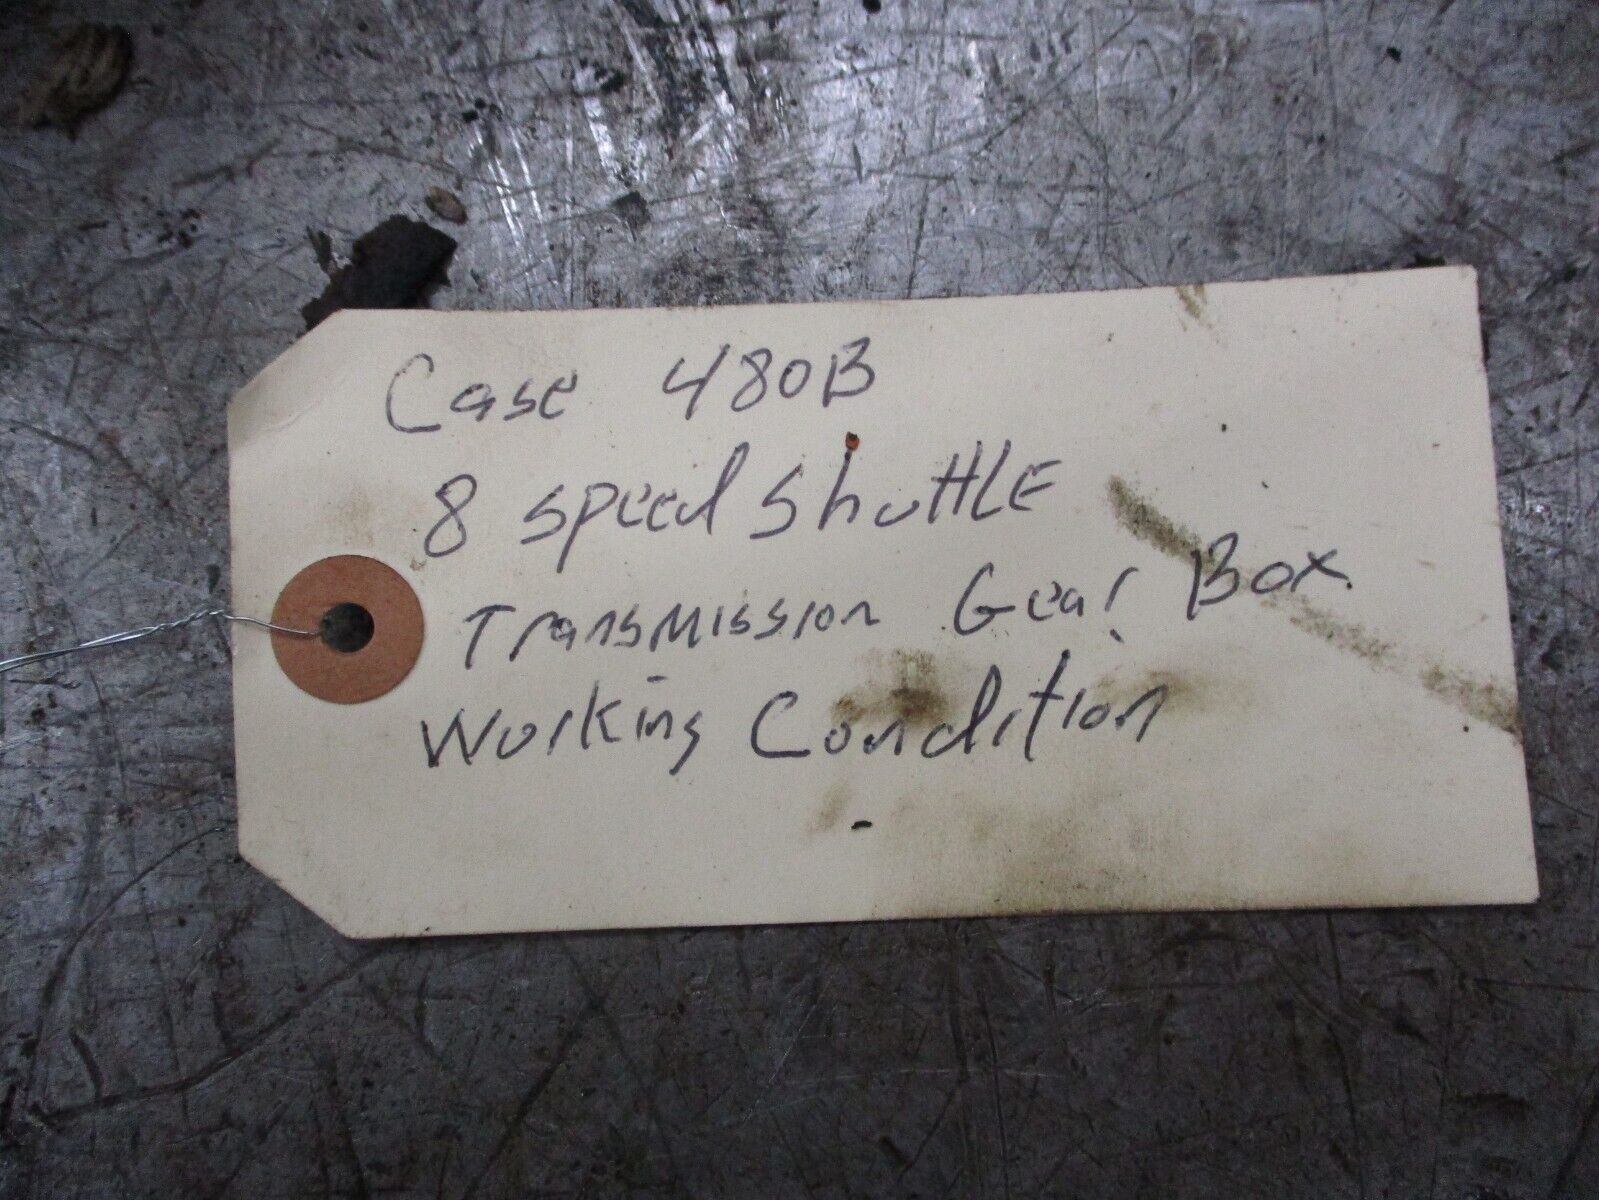 Case 480B
8 speed shuttLE
Transmission Gear Box
Working Condition